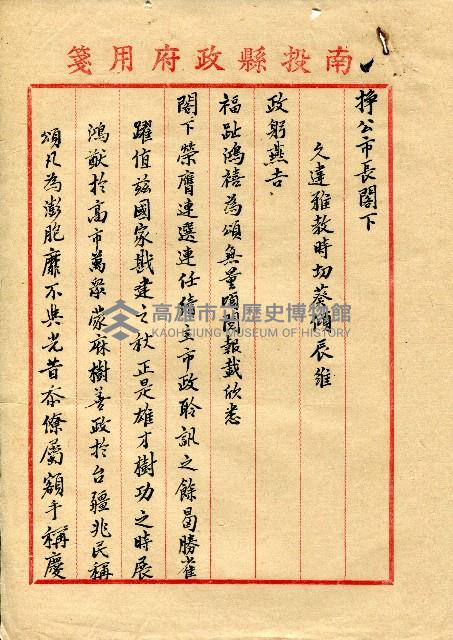 南投縣政府用箋
掙公市長閣下
久違雅教時切葵傾辰維
政躬燕吉
福趾鴻禧為頌無量頃閱報載欣悉
閣下榮膺連選連任績主市政聆訊之餘曷勝雀
躍值茲國家戡建之秋正是雄才樹功之時展
鴻猷於高市萬眾蒙庥樹善政於台疆兆民稱
頌凡為澎胞靡不與光昔忝僚屬額手稱慶
高雄市立歷史博物館
KAOHSIUNG MUSEUM OF HISTORY